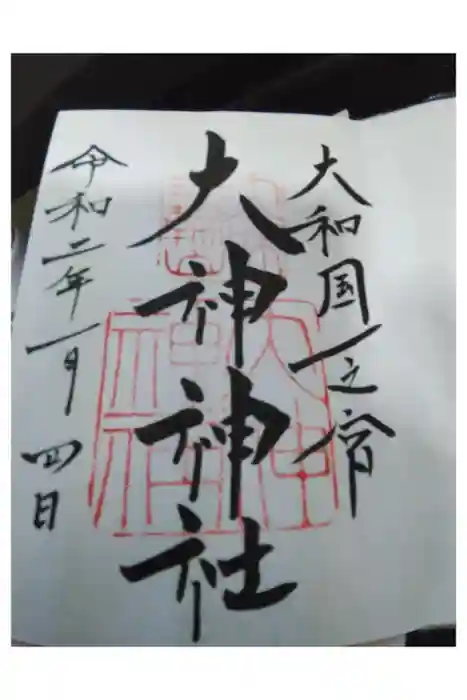 大和国一之宮
大神神社
令和二年一月四日
大神神社